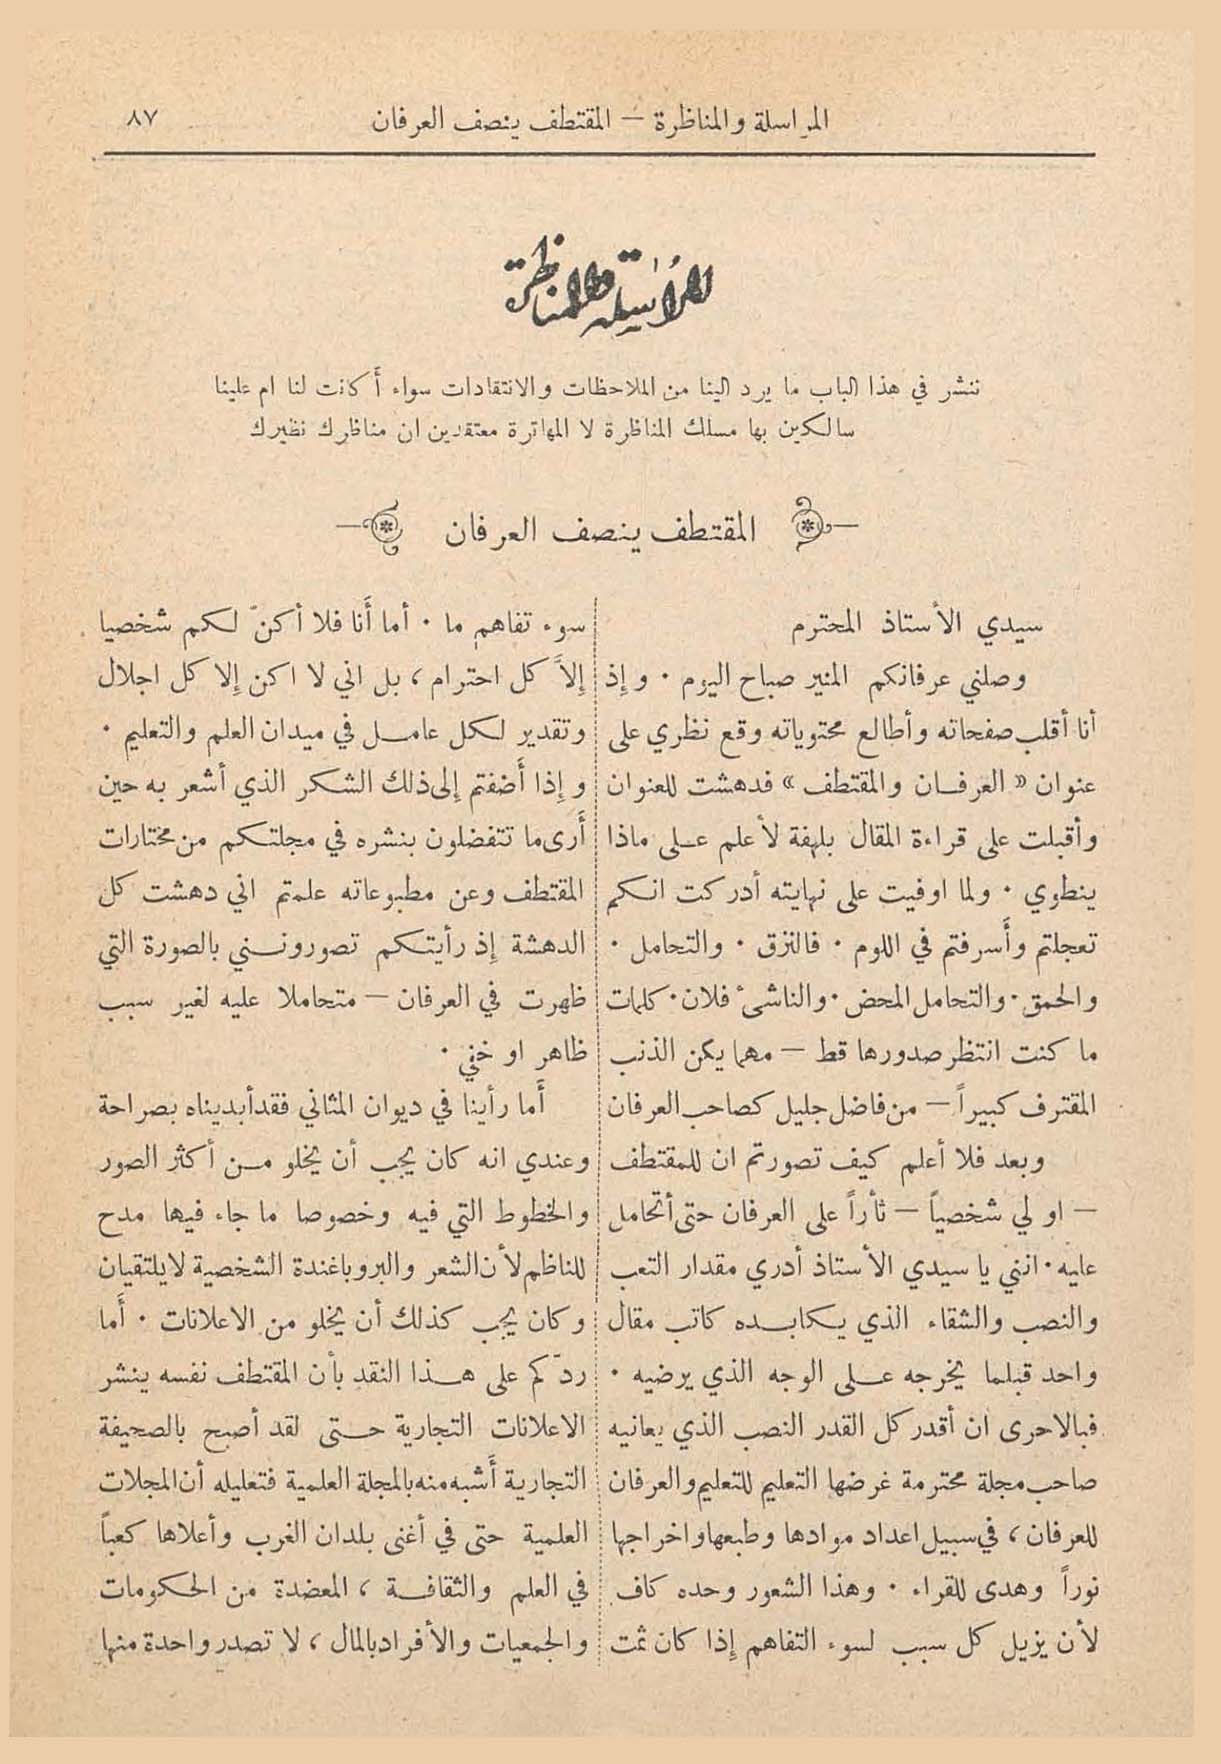 المراسلة والمناظرة — المقتطف ينصف العرفان ٨٧
المراسلة والمناظرة
ننشر في هذا الباب ما يرد الينا من الملاحظات والانتقادات سواء أَكانت لنا ام علينا
سالكين بها مسلك المناظرة لا المهاترة معتقدين ان مناظرك نظيرك
المقتطف ينصف العرفان
سيدي الأستاذ المحترم
وصلني عرفانكم المنير صباح اليوم . وإِذ
أنا أقلب صفحاته وأطالع محتوياته وقع نظري على
عنوان « العرفان والمقتطف » فدهشت للعنوان
وأقبلت على قراءة المقال بلهفة لأعلم على ماذا
ينطوي . ولما اوفيت على نهايته أدركت انكم
تعجلتم وأَسرفتم في اللوم . فالنزق . والتحامل .
والحمق . والتحامل المحض . والناشىء فلان . كلمات
ما كنت انتظر صدورها قط — مهما يكن الذنب
المقترف كبيراً — من فاضل جليل كصاحب العرفان
وبعد فلا أعلم كيف تصورتم ان للمقتطف
— او لي شخصياً — ثأراً على العرفان حتى أتحامل
عليه . انني يا سيدي الأستاذ أدري مقدار التعب
والنصب والشقاء الذي يكابده كاتب مقال
واحد قبلما يخرجه على الوجه الذي يرضيه .
فبالاحرى ان أقدر كل القدر النصب الذي يعانيه
صاحب مجلة محترمة غرضها التعليم للتعليم والعرفان
للعرفان ، في سبيل اعداد موادها وطبعها واخراجها
نوراً وهدى للقراء . وهذا الشعور وحده كاف
لأن يزيل كل سبب لسوء التفاهم إِذا كان ثمت
سوء تفاهم ما . أما أَنا فلا أكنّ لكم شخصيا
إِلاَّ كل احترام ، بل اني لا اكن إِلا كل اجلال
وتقدير لكل عامل في ميدان العلم والتعليم .
وإِذا أَضفتم إِلى ذلك الشكر الذي أشعر به حين
أَرى ما تتفضلون بنشره في مجلتكم من مختارات
المقتطف وعن مطبوعاته علمتم اني دهشت كل
الدهشة إِذ رأيتكم تصورونني بالصورة التي
ظهرت في العرفان — متحاملا عليه لغير سبب
ظاهر او خفي .
أَما رأينا في ديوان المثاني فقد أبديناه بصراحة
وعندي انه كان يجب أن يخلو من أكثر الصور
والخطوط التي فيه وخصوصا ما جاء فيها مدح
للناظم لأن الشعر والبروباغندة الشخصية لا يلتقيان
وكان يجب كذلك أن يخلو من الاعلانات . أَما
ردّكم على هذا النقد بأن المقتطف نفسه ينشر
الاعلانات التجارية حتى لقد أصبح بالصحيفة
التجارية أَشبه منه بالمجلة العلمية فتعليله أن المجلات
العلمية حتى في أغنى بلدان الغرب وأعلاها كعباً
في العلم والثقافة ، المعضدة من الحكومات
والجمعيات والأفراد بالمال ، لا تصدر واحدة منها